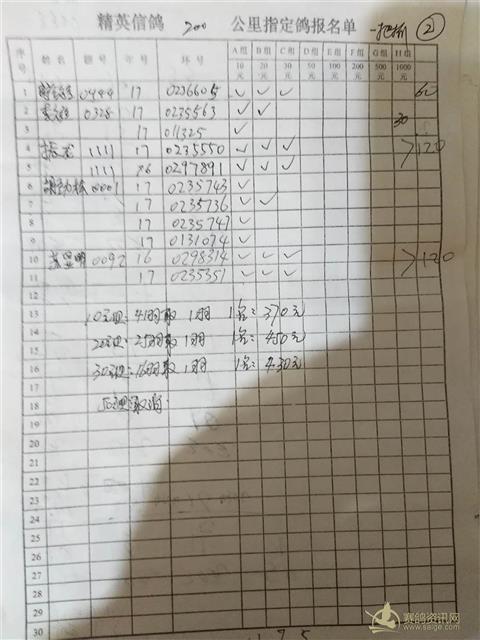 精英信鸽 200 公里指定鸽报名单 一把抓 ②
序号 姓名 棚号 年号 环号 A组10元 B组20元 C组30元 D组50元 E组100元 F组200元 G组500元 H组1000元
1 0444 17 0236605 ✓ ✓ ✓ 60
2 0328 17 0235563 ✓ ✓
3 17 011325 ✓ 30
4 1111 17 0235550 ✓ ✓ ✓ >120
5 1111 16 0297891 ✓ ✓ ✓
6 0001 17 0235743 ✓
7 17 0235736 ✓ ✓
8 17 0235747 ✓
9 17 0131074 ✓
10 0092 16 0298314 ✓ ✓ ✓ >120
11 17 0235351 ✓ ✓ ✓
12
13 10元组:41羽取1羽 1名:370元
14
15 20元组:25羽取1羽 1名:450元
16 30元组:16羽取1羽 1名:430元
17
18 50元组取消
19
20
21
22
23
24
25
26
27
28
29
30
赛鸽资讯网
www.saige.com